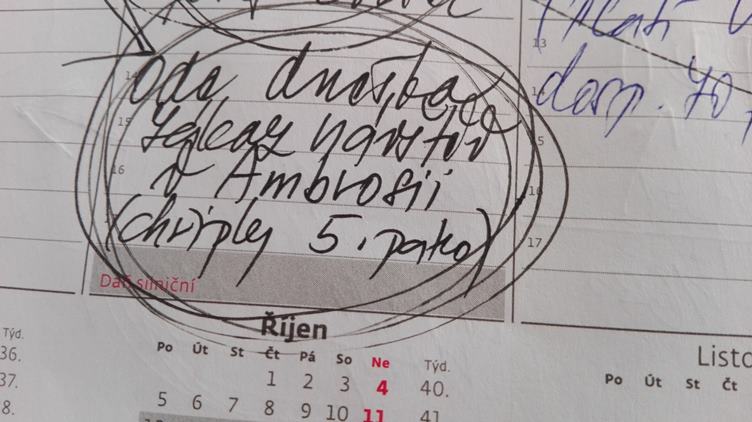 13
Platí
14
Ode dneška
dosp. 70,
15
zákaz návštěv
15
16
v Ambrosii
16
(chřipky 5. patro)
17
Daň silniční
Říjen
Listo
Týd.
Po Út St Čt Pá So Ne Týd.
Po Út St Čt
36.
1 2 3 4 40.
37.
5 6 7 8 9 10 11 41
8.